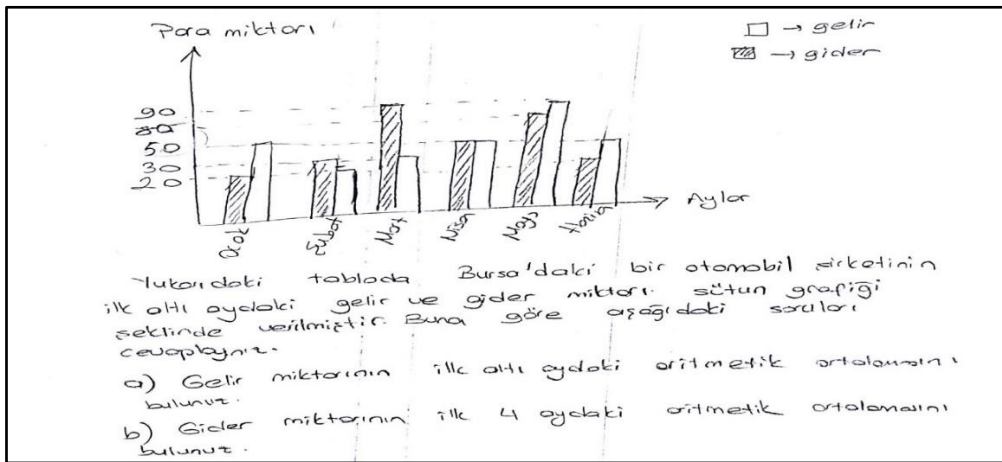 Para miktarı
□ → gelir
▨ → gider
90
80
50
30
20
Ocak
Şubat
Mart
Nisan
Mayıs
Hazira
→ Aylar
Yukarıdaki tabloda Bursa'daki bir otomobil şirketinin
ilk altı aydaki gelir ve gider miktarı sütun grafiği
şeklinde verilmiştir. Buna göre aşağıdaki soruları
cevaplayınız.
a) Gelir miktarının ilk altı aydaki aritmetik ortalamasını
bulunuz.
b) Gider miktarının ilk 4 aydaki aritmetik ortalamasını
bulunuz.